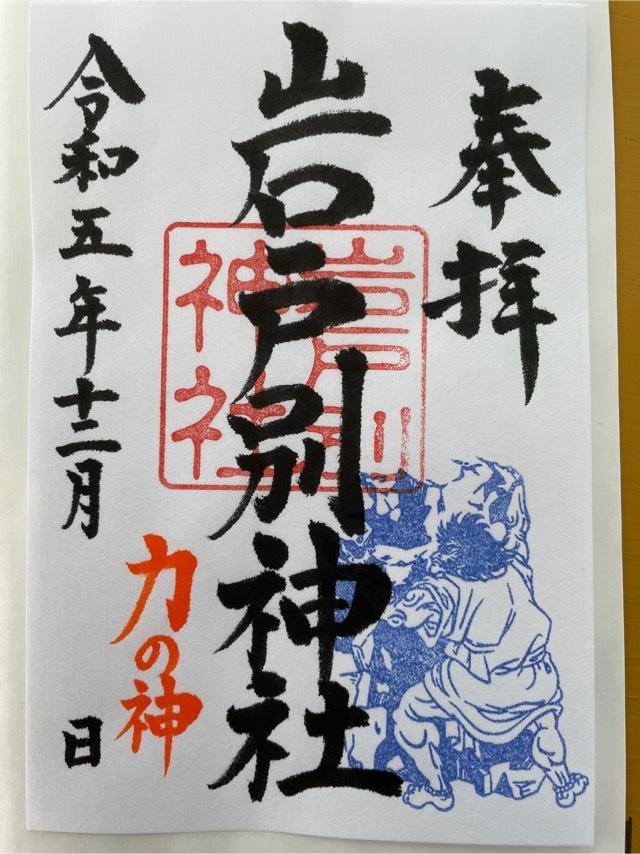 奉拝
岩戸別神社
岩戸別
神社
力の神
令和五年十二月 日